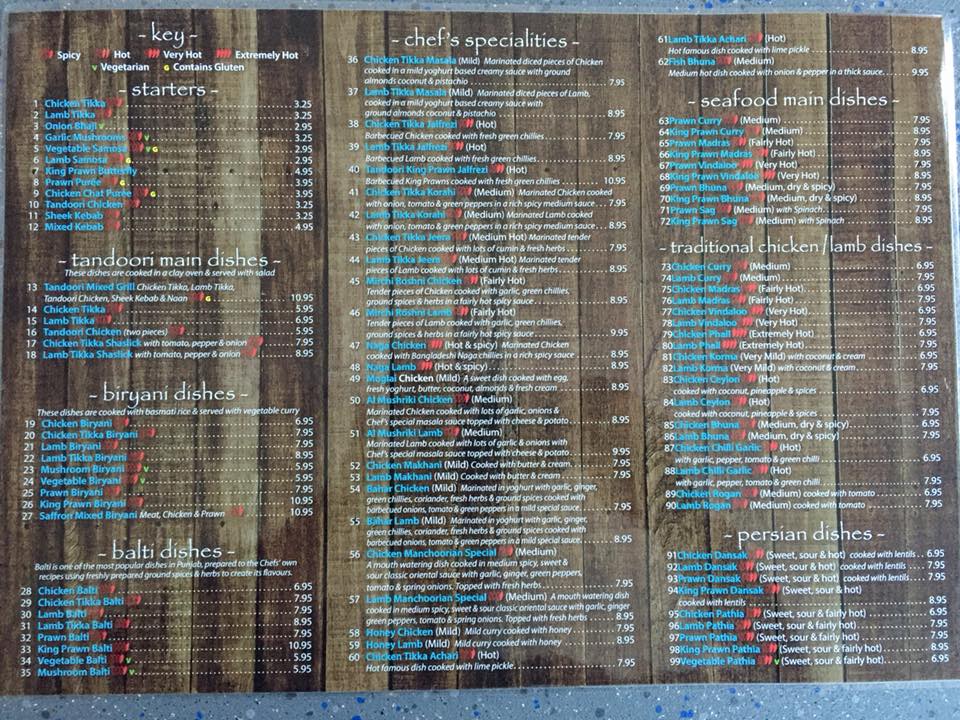 - key -
Spicy Hot Very Hot Extremely Hot
v Vegetarian G Contains Gluten
- starters -
1 Chicken Tikka 3.25
2 Lamb Tikka 3.25
3 Onion Bhaji v 2.95
4 Garlic Mushrooms v 3.25
5 Vegetable Samosa v G 2.95
6 Lamb Samosa G 2.95
7 King Prawn Butterfly 4.95
8 Prawn Puree G 3.95
9 Chicken Chat Puree G 3.25
10 Tandoori Chicken 3.25
11 Sheek Kebab 3.25
12 Mixed Kebab 4.95
- tandoori main dishes -
These dishes are cooked in a clay oven & served with salad
13 Tandoori Mixed Grill Chicken Tikka, Lamb Tikka,
Tandoori Chicken, Sheek Kebab & Naan G 10.95
14 Chicken Tikka 5.95
15 Lamb Tikka 6.95
16 Tandoori Chicken (two pieces) 5.95
17 Chicken Tikka Shaslick with tomato, pepper & onion 7.95
18 Lamb Tikka Shaslick with tomato, pepper & onion 8.95
- biryani dishes -
These dishes are cooked with basmati rice & served with vegetable curry
19 Chicken Biryani 6.95
20 Chicken Tikka Biryani 7.95
21 Lamb Biryani 7.95
22 Lamb Tikka Biryani 8.95
23 Mushroom Biryani v 5.95
24 Vegetable Biryani v 5.95
25 Prawn Biryani 7.95
26 King Prawn Biryani 10.95
27 Saffron Mixed Biryani Meat, Chicken & Prawn 10.95
- balti dishes -
Balti is one of the most popular dishes in Punjab, prepared to the Chefs' own
recipes using freshly prepared ground spices & herbs to create its flavours.
28 Chicken Balti 6.95
29 Chicken Tikka Balti 7.95
30 Lamb Balti 7.95
31 Lamb Tikka Balti 8.95
32 Prawn Balti 7.95
33 King Prawn Balti 10.95
34 Vegetable Balti v 5.95
35 Mushroom Balti v 5.95
- chef's specialities -
36 Chicken Tikka Masala (Mild) Marinated diced pieces of Chicken
cooked in a mild yoghurt based creamy sauce with ground
almonds coconut & pistachio 7.95
37 Lamb Tikka Masala (Mild) Marinated diced pieces of Lamb,
cooked in a mild yoghurt based creamy sauce with
ground almonds coconut & pistachio 8.95
38 Chicken Tikka Jalfrezi (Hot)
Barbecued Chicken cooked with fresh green chillies 7.95
39 Lamb Tikka Jalfrezi (Hot)
Barbecued Lamb cooked with fresh green chillies 8.95
40 Tandoori King Prawn Jalfrezi (Hot)
Barbecued King Prawns cooked with fresh green chillies 10.95
41 Chicken Tikka Korahi (Medium) Marinated Chicken cooked
with onion, tomato & green peppers in a rich spicy medium sauce 7.95
42 Lamb Tikka Korahi (Medium) Marinated Lamb cooked
with onion, tomato & green peppers in a rich spicy medium sauce 8.95
43 Chicken Tikka Jeera (Medium Hot) Marinated tender
pieces of Chicken cooked with lots of cumin & fresh herbs 7.95
44 Lamb Tikka Jeera (Medium Hot) Marinated tender
pieces of Lamb cooked with lots of cumin & fresh herbs 8.95
45 Mirchi Roshni Chicken (Fairly Hot)
Tender pieces of Chicken cooked with garlic, green chillies,
ground spices & herbs in a fairly hot spicy sauce 8.95
46 Mirchi Roshni Lamb (Fairly Hot)
Tender pieces of Lamb cooked with garlic, green chillies,
ground spices & herbs in a fairly hot spicy sauce 9.95
47 Naga Chicken (Hot & spicy) Marinated Chicken
cooked with Bangladeshi Naga chillies in a rich spicy sauce 8.95
48 Naga Lamb (Hot & spicy) 8.95
49 Moglai Chicken (Mild) A sweet dish cooked with egg,
fresh yoghurt, butter, coconut, almonds & fresh cream 8.95
50 Al Mushriki Chicken (Medium)
Marinated Chicken cooked with lots of garlic, onions &
Chef's special masala sauce topped with cheese & potato 8.95
51 Al Mushriki Lamb (Medium)
Marinated Lamb cooked with lots of garlic & onions with
Chef's special masala sauce topped with cheese & potato 9.95
52 Chicken Makhani (Mild) Cooked with butter & cream 7.95
53 Lamb Makhani (Mild) Cooked with butter & cream 7.95
54 Bahar Chicken (Mild) Marinated in yoghurt with garlic, ginger,
green chillies, coriander, fresh herbs & ground spices cooked with
barbecued onions, tomato & green peppers in a mild special sauce 7.95
55 Bahar Lamb (Mild) Marinated in yoghurt with garlic, ginger,
green chillies, coriander, fresh herbs & ground spices cooked with
barbecued onions, tomato & green peppers in a mild special sauce 8.95
56 Chicken Manchoorian Special (Medium)
A mouth watering dish cooked in medium spicy, sweet &
sour classic oriental sauce with garlic, ginger, green peppers,
tomato & spring onions. Topped with fresh herbs 7.95
57 Lamb Manchoorian Special (Medium) A mouth watering dish
cooked in medium spicy, sweet & sour classic oriental sauce with garlic, ginger
green peppers, tomato & spring onions. Topped with fresh herbs 8.95
58 Honey Chicken (Mild) Mild curry cooked with honey 7.95
59 Honey Lamb (Mild) Mild curry cooked with honey 8.95
60 Chicken Tikka Achari (Hot)
Hot famous dish cooked with lime pickle 7.95
61 Lamb Tikka Achari (Hot)
Hot famous dish cooked with lime pickle 8.95
62 Fish Bhuna (Medium)
Medium hot dish cooked with onion & pepper in a thick sauce 9.95
- seafood main dishes -
63 Prawn Curry (Medium) 7.95
64 King Prawn Curry (Medium) 8.95
65 Prawn Madras (Fairly Hot) 7.95
66 King Prawn Madras (Fairly Hot) 8.95
67 Prawn Vindaloo (Very Hot) 7.95
68 King Prawn Vindaloo (Very Hot) 8.95
69 Prawn Bhuna (Medium, dry & spicy) 7.95
70 King Prawn Bhuna (Medium, dry & spicy) 8.95
71 Prawn Sag (Medium) with Spinach 7.95
72 King Prawn Sag (Medium) with Spinach 8.95
- traditional chicken / lamb dishes -
73 Chicken Curry (Medium) 6.95
74 Lamb Curry (Medium) 7.95
75 Chicken Madras (Fairly Hot) 6.95
76 Lamb Madras (Fairly Hot) 7.95
77 Chicken Vindaloo (Very Hot) 6.95
78 Lamb Vindaloo (Very Hot) 7.95
79 Chicken Phall (Extremely Hot) 6.95
80 Lamb Phall (Extremely Hot) 7.95
81 Chicken Korma (Very Mild) with coconut & cream 6.95
82 Lamb Korma (Very Mild) with coconut & cream 7.95
83 Chicken Ceylon (Hot)
cooked with coconut, pineapple & spices 6.95
84 Lamb Ceylon (Hot)
cooked with coconut, pineapple & spices 7.95
85 Chicken Bhuna (Medium, dry & spicy) 6.95
86 Lamb Bhuna (Medium, dry & spicy) 7.95
87 Chicken Chilli Garlic (Hot)
with garlic, pepper, tomato & green chilli 6.95
88 Lamb Chilli Garlic (Hot)
with garlic, pepper, tomato & green chilli 7.95
89 Chicken Rogan (Medium) cooked with tomato 6.95
90 Lamb Rogan (Medium) cooked with tomato 7.95
- persian dishes -
91 Chicken Dansak (Sweet, sour & hot) cooked with lentils 6.95
92 Lamb Dansak (Sweet, sour & hot) cooked with lentils 7.95
93 Prawn Dansak (Sweet, sour & hot) cooked with lentils 7.95
94 King Prawn Dansak (Sweet, sour & hot)
cooked with lentils 8.95
95 Chicken Pathia (Sweet, sour & fairly hot) 6.95
96 Lamb Pathia (Sweet, sour & fairly hot) 7.95
97 Prawn Pathia (Sweet, sour & fairly hot) 7.95
98 King Prawn Pathia (Sweet, sour & fairly hot) 8.95
99 Vegetable Pathia v (Sweet, sour & fairly hot) 6.95